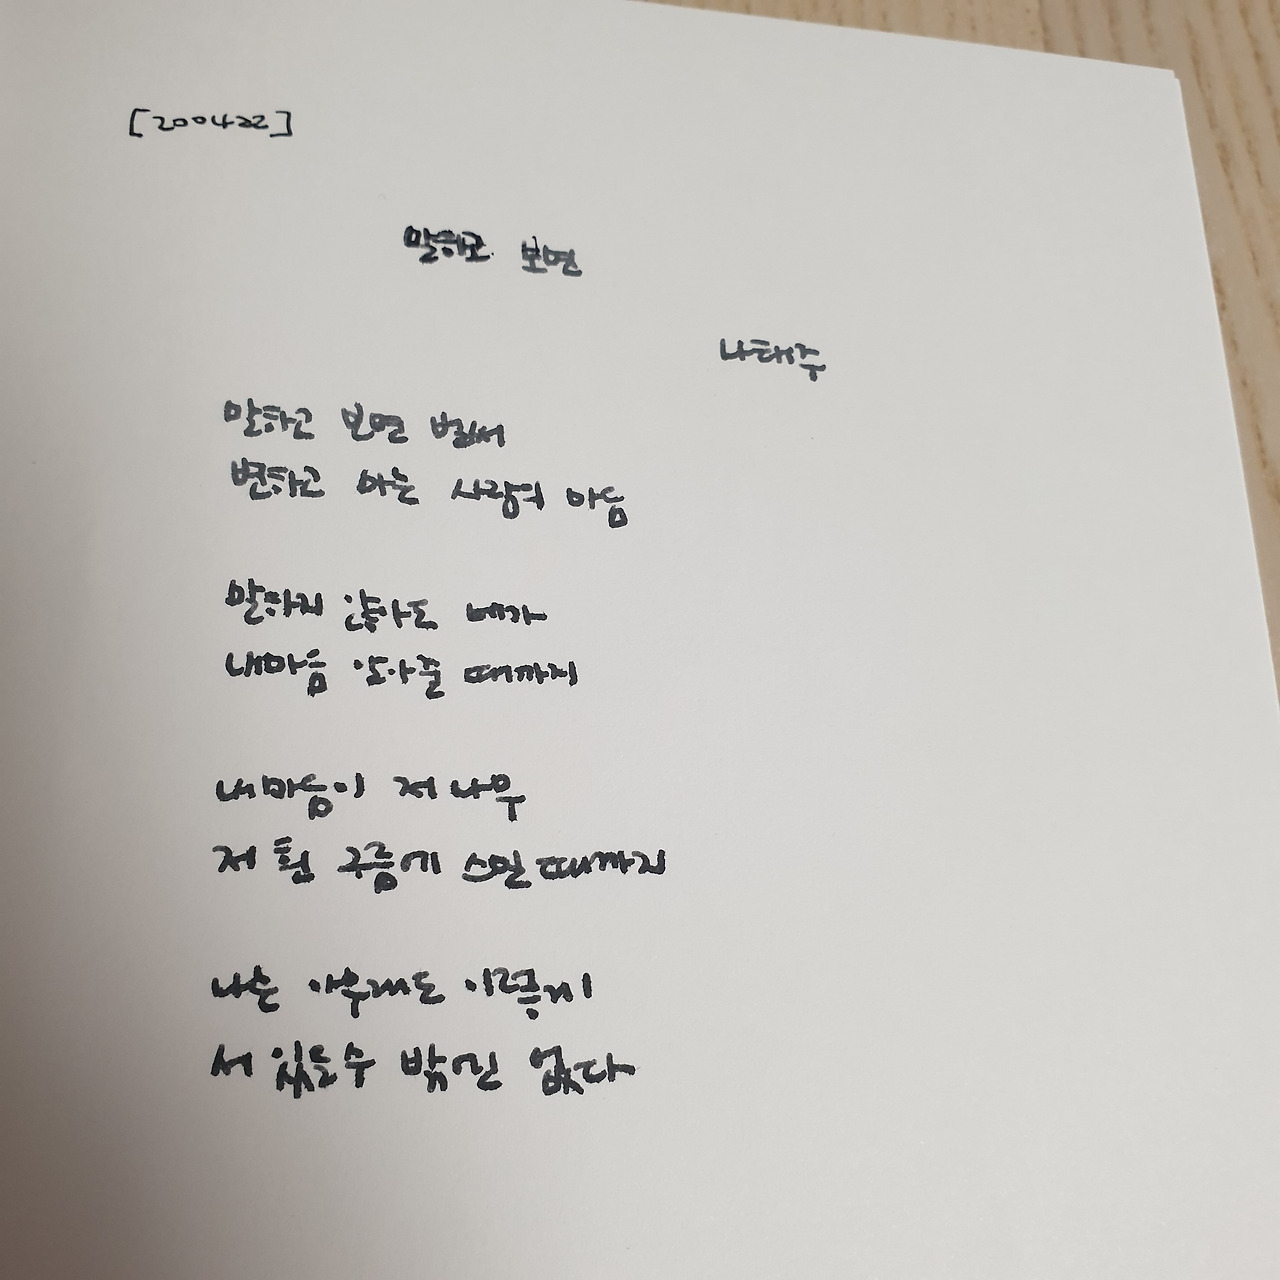 [200422]
말하고 보면
나태주
말하고 보면 벌써
변하고 마는 사람의 마음
말하지 않아도 네가
내마음 알아줄 때까지
내마음이 저 나무
저 흰 구름에 스밀 때까지
나는 아무래도 이렇게
서 있을수 밖엔 없다